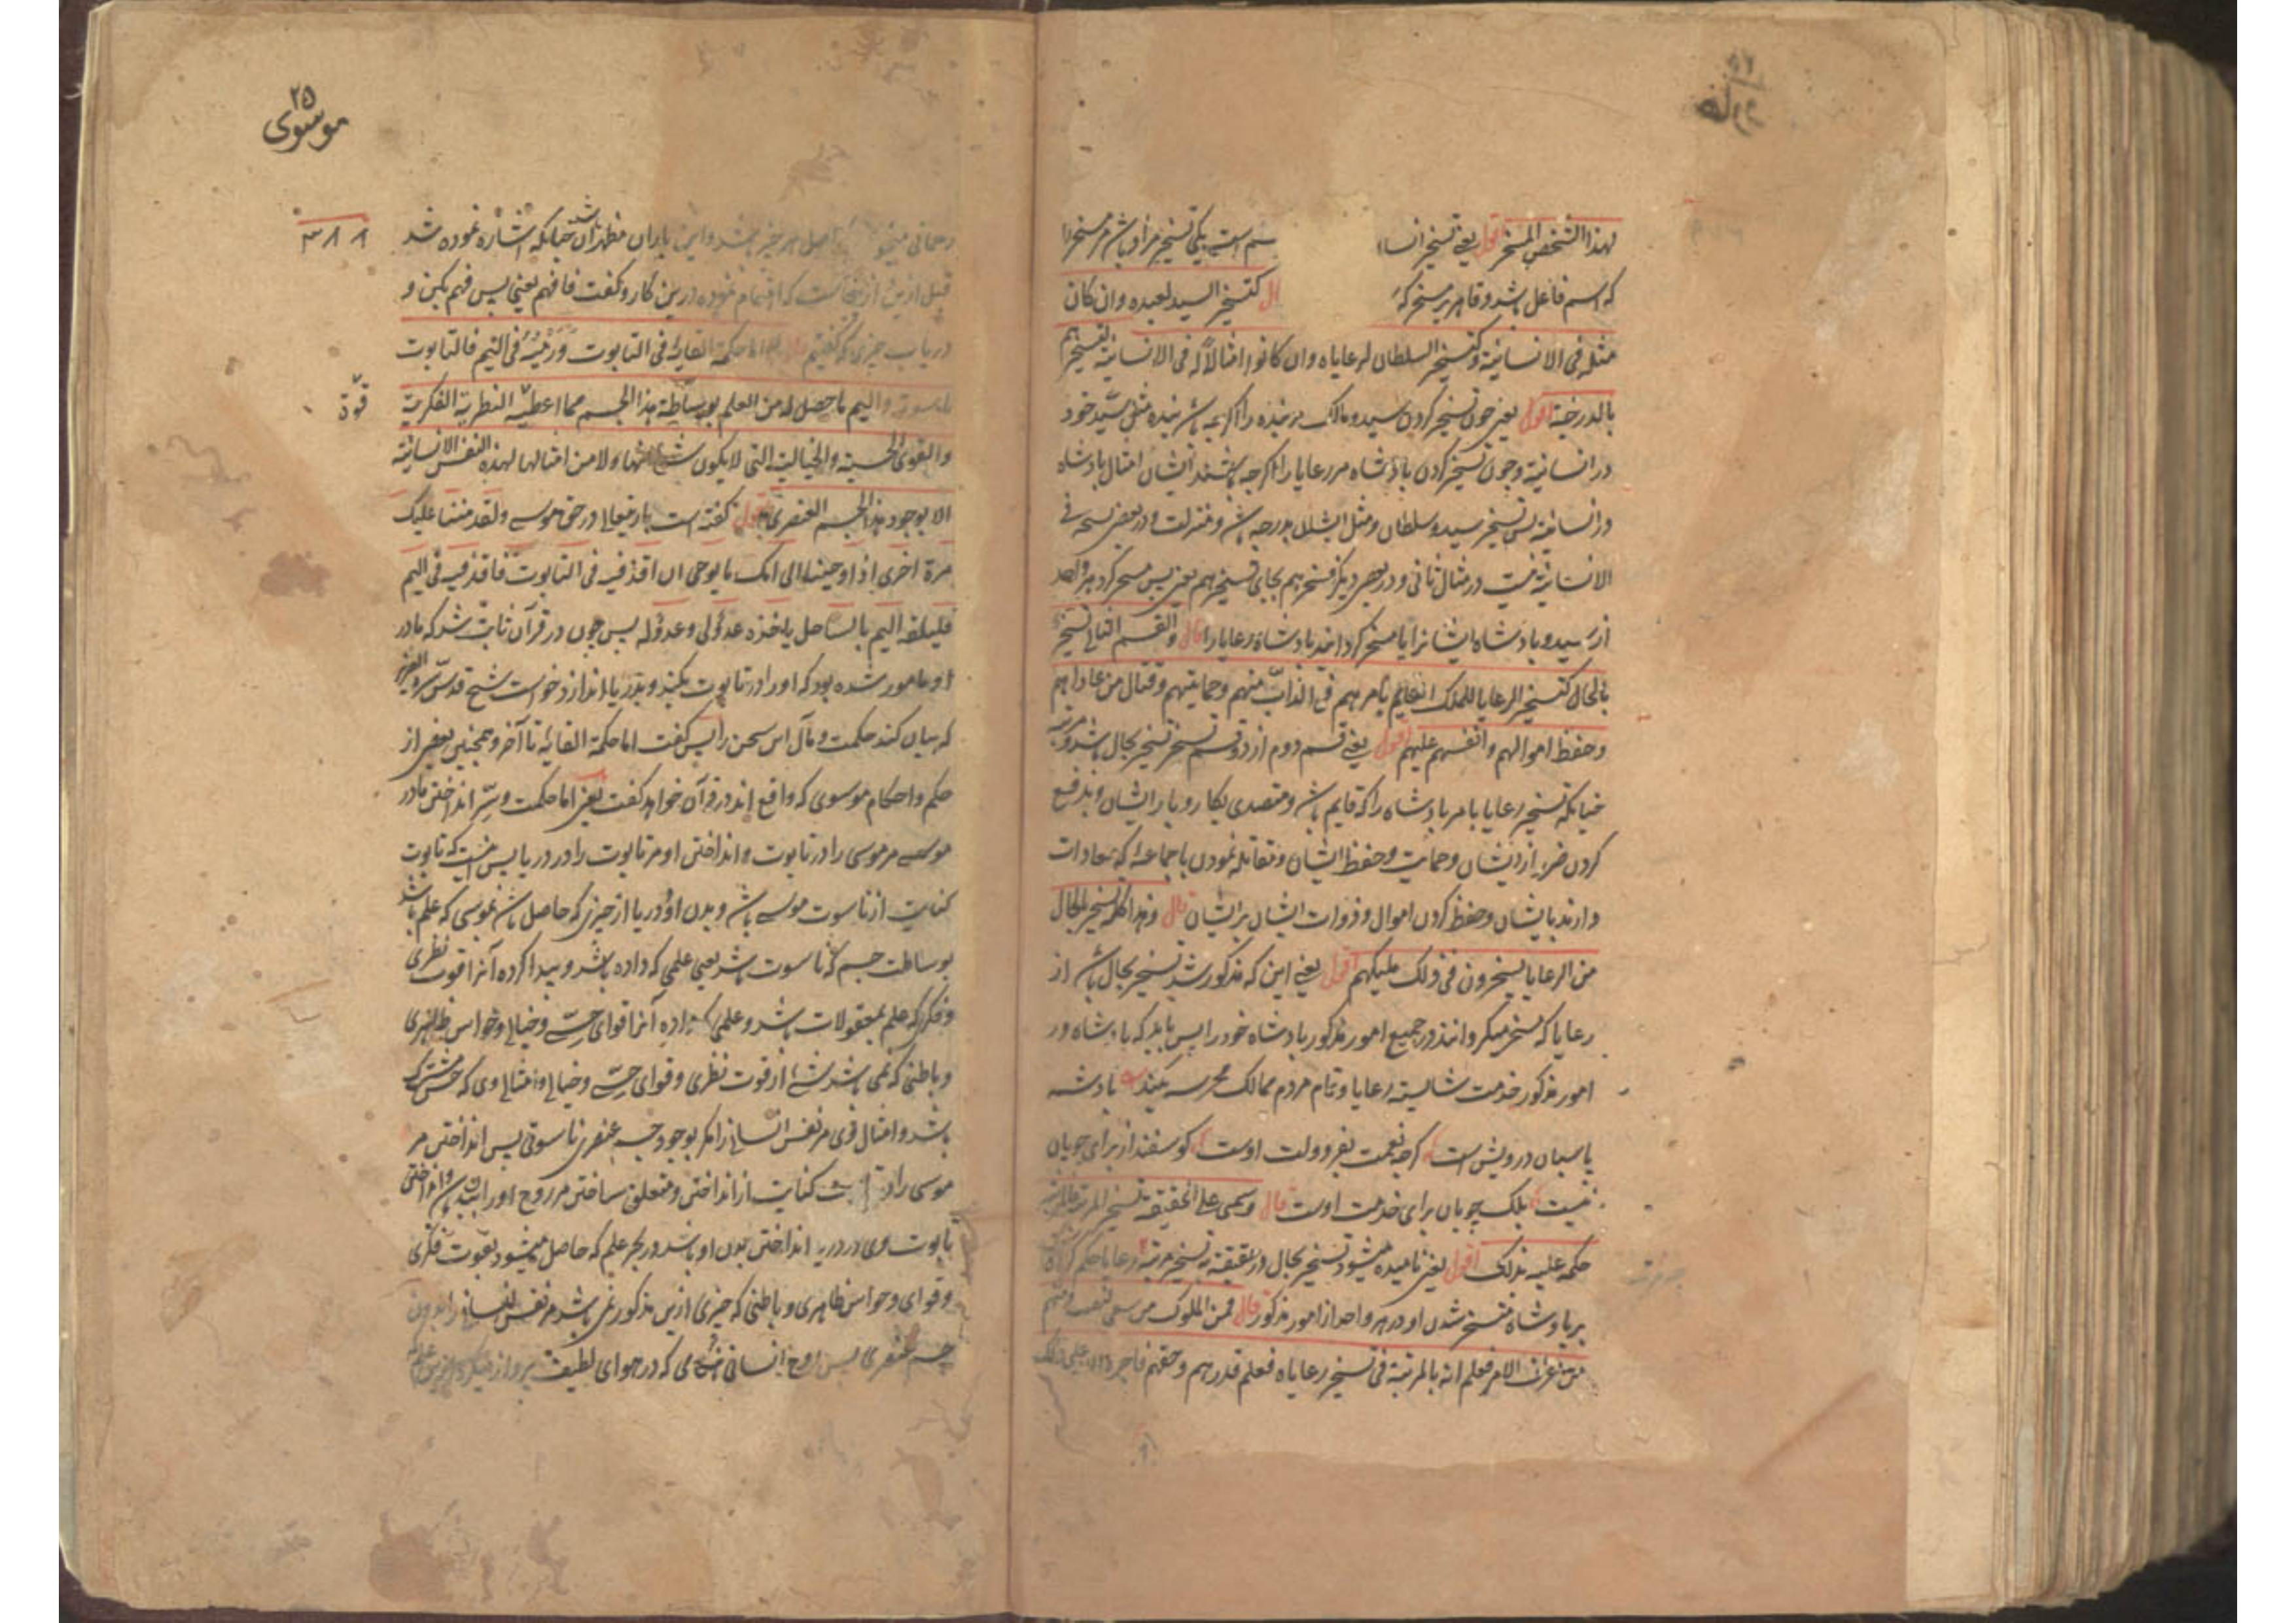 لهذا الشخص المسخر اقول یعنی تسخیر انسا سم است یکی تسخیر مراد باشد مر مسخر را
که اسم فاعل باشد و قاهر بر مسخر که ال کتسخیر السید لعبده وان کان
مثله فی الانسانیة و کتسخیر السلطان لرعایاه وان کانوا امثالاً له فی الانسانیة فتسخیرهم
بالدرجة اقول یعنی چون تسخیر کردن سید و مالک مر بنده را اگرچه باشد بنده مثل سید خود
در انسانیة و چون تسخیر کردن بادشاه مر رعایا را اگرچه باشند ایشان امثال بادشاه
در انسانیة پس تسخیر سید و سلطان و مثل ایشان بدرجه باشد و منزلت و در بعضی نسخه فی
الانسانیة نیست در مثال ثانی و در بعضی دیگر فسخرهم بجای تسخیرهم یعنی پس مسخر کرد هر واحد
از سید و بادشاه ایشانرا یا مسخر کردانند بادشاه رعایا را قال و القسم الثانی تسخیر
بالحال کتسخیر الرعایا للملک القایم بامرهم فی الذبّ عنهم و حمایتهم و قتال من عاداهم
و حفظ اموالهم و انفسهم علیهم اقول یعنی قسم دوم از دو قسم تسخیر تسخیر بحال باشد
چنانکه تسخیر رعایا بامر بادشاه را که قایم باشد و متصدی بکار و بار ایشان و بدفع
کردن ضرر از ایشان و حمایت و حفظ ایشان و مقاتله نمودن با جماعه که معادات
دارند بایشان و حفظ کردن اموال و ذوات ایشان بر ایشان قال و هذا کله تسخیر بالحال
من الرعایا یسخرون فی ذلک ملیکهم اقول یعنی این که مذکور شد تسخیر بحال باشد از
رعایا که مسخر میکردانند در جمیع امور مذکور بادشاه خود را پس باید که بادشاه در
امور مذکور خدمت شایسته رعایا و تمام مردم ممالک محرسه بکند بادشه
پاسبان درویش است کرچه نعمت بفر دولت اوست کوسفند از برای چوپان
نیست بلکه چوپان برای خدمت اوست قال و یسمی علی الحقیقة تسخیر المرتبة فالمرتبة
حکمت علیه بذلک اقول یعنی نامیده میشود تسخیر بحال در حقیقة تسخیر مرتبة رعایا حکم کرد
بر بادشاه مسخر شدن او در هر واحد از امور مذکور قال فمن الملوک من سعی لنفسه و منهم
من عرف الامر فعلم انه بالمرتبة فی تسخیر رعایاه فعلم قدرهم و حقهم فاجره الله علی ذلک
۲۵
موسوی
اصل هر چیز باشد و این یاران مظهر آن باشد چنانکه اشاره نموده شد
قبل ازین از نجاست که اهتمام نموده درین کار و کفت فافهم یعنی پس فهم بکن و
دریاب چیزی که کفتیم قال و اما حکمة القایه فی التابوت و رمیه فی الیم فالتابوت
ناسوته و الیم ما حصل له من العلم بوساطة هذا الجسم مما اعطته النظریة الفکریة
قوّة
و القوی الحسیة و الخیالیة التی لا یکون شئ منها و لا من امثالها لهذه النفس الانسانیة
الا بوجود هذا الجسم العنصری اقول کفته است باریتعالی در حق موسی و لقد مننا علیک
مرة اخری اذ اوحینا الی امک ما یوحی ان اقذفیه فی التابوت فاقذفیه فی الیم
فلیلقه الیم بالساحل یاخذه عدو لی و عدو له پس چون در قرآن ثابت شد که مادر
او مامور شده بود که او را در تابوت بکند و بدریا اندازد خواست شیخ قدس سره العزیز
که بیان کند حکمت و مآل این سخن را پس کفت اما حکمة القایه تا آخر و همچنین بعضی از
حکم و احکام موسوی که واقع اند در قرآن خواهد کفت یعنی اما حکمت و سرّ انداختن مادر
موسی مر موسی را در تابوت و انداختن او مر تابوت را در دریا پس اینست که تابوت
کنایت از ناسوت موسی باشد و بدن او و دریا از چیزی که حاصل باشد بموسی که علم باشد
بوساطت جسم که ناسوت باشد یعنی علمی که داده باشد و پیدا کرده آنرا قوت نظری
و فکری که علم بمعقولات باشد و علمی که داده آنرا قوای حسی و خیالی و حواس ظاهری
و باطنی که نمی باشد شئ از قوت نظری و قوای حسی و خیالی و امثال وی که حس مشترک
باشد و امثال قوی مر نفس انسانی را مکر بوجود جسم عنصری ناسوتی پس انداختن مر
موسی را در کنایت از انداختن و متعلق ساختن مر روح او را ببدن و انداختن
تابوت وی در دریا انداختن بدن او باشد در بحر علم که حاصل میشود بقوت فکری
و قوای و حواس ظاهری و باطنی که چیزی ازین مذکور نمی باشد مر نفس انسانی را بدون
جسم عنصری پس روح انسانی که در هوای لطیف پرواز میکرد